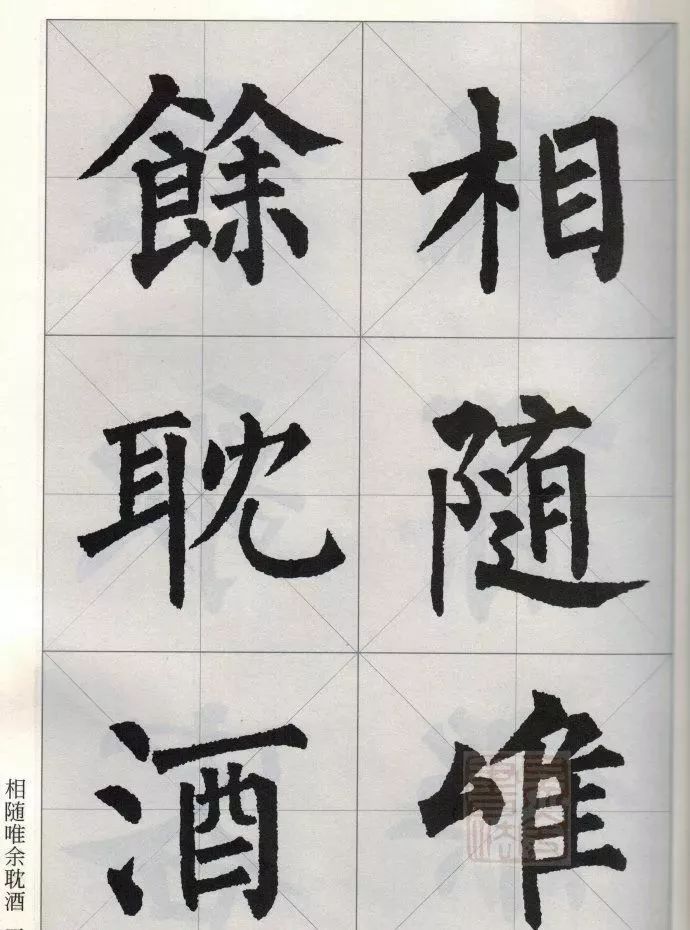 相随唯
餘耽酒
相随唯余耽酒